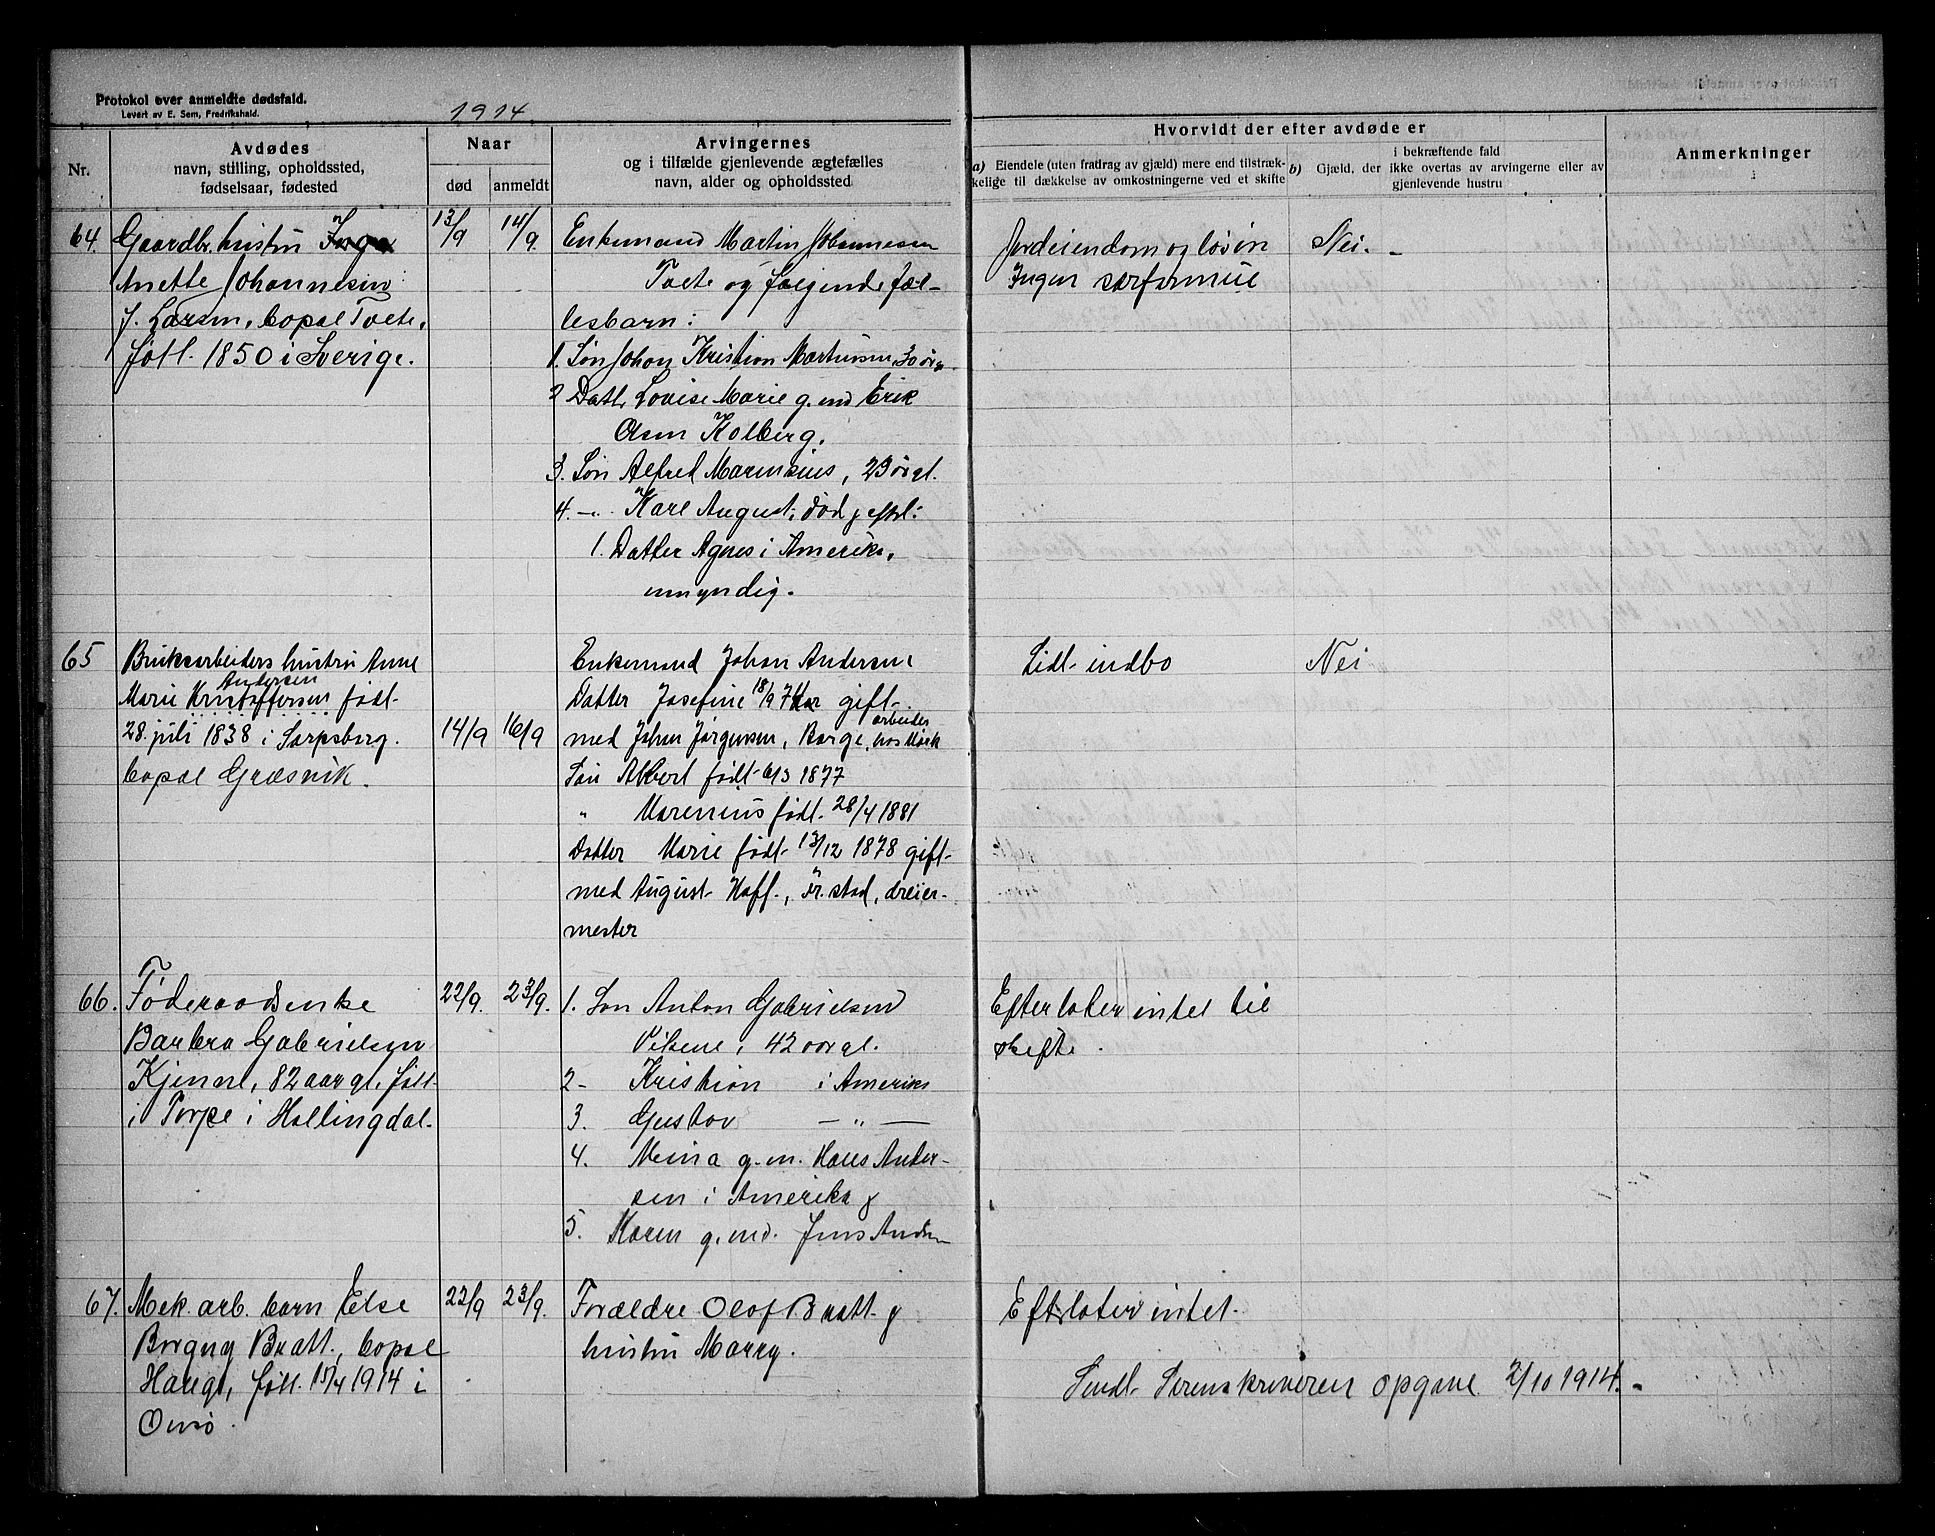 Protokol over anmeldte dødsfald.
Levert av E. Sem, Fredrikshald.
1914
Nr.
Avdødes
navn, stilling, opholdssted,
fødselsaar, fødested
Naar
død
anmeldt
Arvingernes
og i tilfælde gjenlevende ægtefælles
navn, alder og opholdssted
Hvorvidt der efter avdøde er
a) Eiendele (uten fradrag av gjæld) mere end tilstræk-
kelige til dækkelse av omkostningerne ved et skifte
b) Gjæld, der
i bekræftende fald
ikke overtas av arvingerne eller av
gjenlevende hustru
Anmerkninger
64.
Gaardbr. hustru Inga
Anette Johannesen
f. Larsen, bopæl Tofte,
født 1850 i Sverige.
13/9
14/9.
Enkemand Martin Johannesen
Tofte og følgende fæl-
lesbarn:
1. Søn Johan Kristian Martinsen, 30 år
2 Datt. Lovise Marie g. m Erik
Olsen Kolberg.
3. Søn Alfred Marensius, 23 år gl.
4. -"- Karl August, død, efterl:
1. Datter Agnes i Amerika,
umyndig.
Jordeiendom og løsøre
Ingen særformue
Nei. -
65
Bruksarbeiders hustru Anne
Andersen
Marie Kristoffersen født
28. juli 1838 i Sarpsborg.
bopæl Græsvik.
14/9
16/9
Enkemand Johan Andersen
Datter Josefine 18/9 74 gift
arbeider
med Johan Jørgensen, Borge, hos Møek
Søn Albert født 6/3 1877
" Marenius født 28/4 1881
Datter Marie født 13/12 1878 gift
med August Hoff., Fr.stad, dreier-
mester
Lidt indbo
Nei
66.
Føderaadsenke
Barbra Gabrielsen
Kjenne, 82 aar gl., født
i Torpe i Hallingdal.
22/9.
23/9.
1. Søn Anton Gabrielsen
Vikene, 42 aar gl.
2- Kristian i Amerika
3. Gustav — " —
4. Mina g. m. Hans Ander-
sen i Amerika &
5. Karen g. m. Jens Andsn
Efterlater intet til
skifte.
67.
Mek. arb. barn Else
Borgny Bratt, bopæl
Hauge, født 15/4 1914 i
Onsø.
22/9
23/9.
Forældre Olof Bratt &
hustru Marry.
Efterlater intet.
Sendt Sorenskriveren opgave 2/10 1914. -